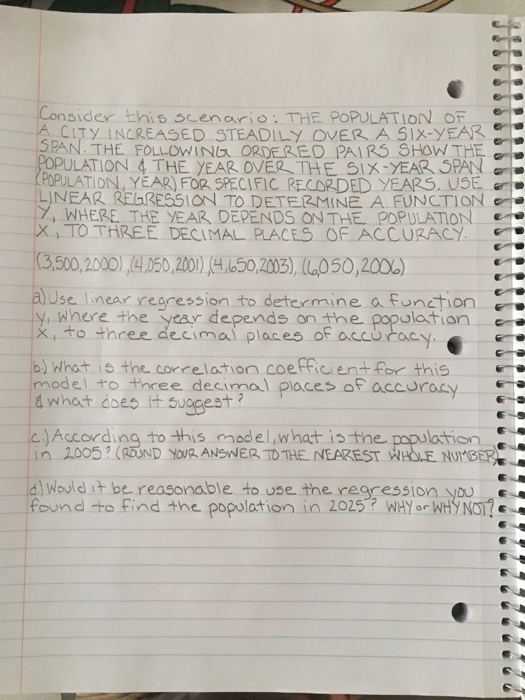 Consider this scenario: THE POPULATION OF
A CITY INCREASED STEADILY OVER A SIX-YEAR
SPAN. THE FOLLOWING ORDERED PAIRS SHOW THE
POPULATION & THE YEAR OVER THE SIX-YEAR SPAN
(POPULATION, YEAR) FOR SPECIFIC RECORDED YEARS. USE
LINEAR REGRESSION TO DETERMINE A FUNCTION
Y, WHERE THE YEAR DEPENDS ON THE POPULATION
X, TO THREE DECIMAL PLACES OF ACCURACY.
(3,500,2000), (4,050,2001), (4,650,2003), (6,050,2006)
a) Use linear regression to determine a function
y, where the year depends on the population
x, to three decimal places of accuracy.
b) What is the correlation coefficient for this
model to three decimal places of accuracy
& what does it suggest?
c.) According to this model, what is the population
in 2005? (ROUND YOUR ANSWER TO THE NEAREST WHOLE NUMBER)
d) Would it be reasonable to use the regression you
found to find the population in 2025? WHY or WHY NOT?